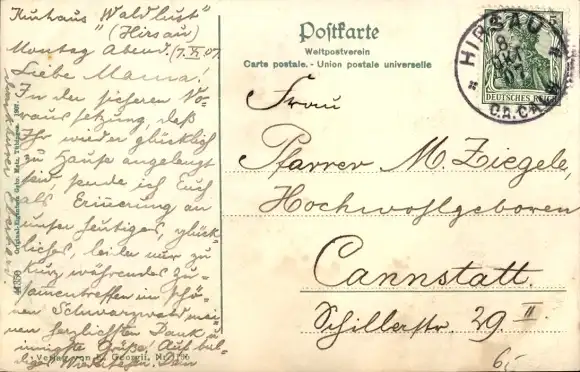 Kurhaus "Waldlust"
" (Hirsau)
Montag Abend. (7. X. 07.)
Liebe Mama!
In der sicheren Vo-
raussetzung, daß
Ihr wieder glücklich
zu Hause angelangt
seid, sende ich Euch
als Erinnerung an
unser heutiges, glück-
liches, leider nur zu
kurz währendes Zu-
samentreffen im schö-
nen Schwarzwald mei-
nen herzlichsten Dank u.
innigste Grüße! Auf bal-
diges Wiedersehn. Dein
Verlag von
Georgii,
Original-Eigentum Gebr. Metz, Tübingen. 1907.
Postkarte
Weltpostverein
Carte postale. - Union postale universelle
HIRSAU
8
OKT
07
5
DEUTSCHES REICH
Frau
Pfarrer M. Ziegele,
Hochwohlgeboren
Cannstatt.
Schillerstr. 29 II.